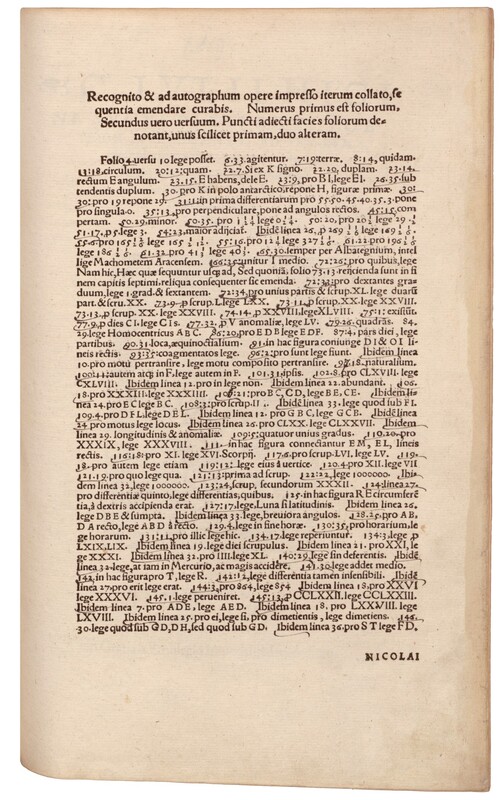 Recognito & ad autographum opere impresso iterum collato, se
quentia emendare curabis. Numerus primus est foliorum,
Secundus uero uersuum. Puncti adiecti facies foliorum de-
notant, unus scilicet primam, duo alteram.
Folio 4. uersu 10 lege posset. 6.33. agitentur. 7:19: terræ. 8:14, quidam.
13:18. circulum. 20:12: quam. 22.7. Si ex K signo. 22.20, duplam. 23.14.
rectum E angulum. 23.15. E habens, dele E. 23:9, pro B I, lege E I. 26.35. sub
tendentis duplum. 30. pro K in polo antarctico, repone H, figuræ primæ. 30:
30: pro 19 repone 29. 31:1: in prima differentiarum pro 55.50. 45.40. 35. 2. pone
pro singula 0. 35:13, pro perpendiculare, pone ad angulos rectos. 45:15 com
pertam. 50.29. minor. 50.35. pro
51.17, p 5. lege 3. 54:23. maior adijciat. Ibidē linea 26.
55.6. pro 165 55:16. pro 61.22 pro
lege 186 61.32. pro 65.30. semper per Albategnium, intel
lige Machometum Aracensem. 66:3: equntur I medio. 72:26: pro quibus, lege
Nam hic, Hæc quæ sequuntur usq; ad, Sed quoniā, folio 73.13 reijcienda sunt in fi
nem capitis septimi. reliqua consequenter sic emenda. 72:32: pro dextantes gra-
duum, lege 1 grad. & sextantem. 72:34, pro unius partis & scrup. XL. lege duarū
part. & scru. XX. 73.9. p scrup. L lege LXX. 73.11, p scrup. XX. lege XXVIII.
73.13, p scrup. XX. lege XXVIII. 74.14, p XXVIII, lege XLVIII. 75:1: existūt.
77.9, p dies C I. lege C I s. 77.32, p V anomaliæ, lege LV. 79.26. quadrās. 84.
29. lege Homocentricus A B C. 86:20, pro E D lege E D F. 87:4. pars diei, lege
partibus. 90.31. loca, æquinoctialium. 91. in hac figura coniunge D I & O I li
neis rectis. 93:35: coagmentatos lege. 96:2: pro sunt lege fiunt. Ibidem linea
10. pro motui pertransire, lege motu composito pertransire. 98.18. naturalium.
100:14: autem atq; in F. lege autem in F. 101.31. dipsis. 102.8. pro CLXVIII. lege
CXLVIII. Ibidem linea 12. pro in lege non. Ibidem linea 22. abundant. 106.
18. pro XXXIII. lege XXXIIII. 106:21: pro B C, C D, lege B E, C E. Ibidem li=
nea 24. pro E C lege B C. 108:3: pro scrup. II Ibidē linea 33. lege quod sub F L
109.4. pro D F L. lege D E L. Ibidem linea 12. pro G B C, lege G C B. Ibidē linea
24 pro motus lege locus. Ibidem linea 26. pro CLXX. lege CLXXVII. Ibidem
linea 29. longitudinis & anomaliæ. 109:5: quatuor unius gradus. 110.20. pro
XXXIX, lege XXXVIII. 111. in hac figura connectantur E M, E L, lineis
rectis. 116:18: pro XI. lege XVI. Scorpij. 117.6. pro scrup. LVI. lege LV. 119.
18. pro autem lege etiam 119:12: lege eius à uertice. 120.4. pro XII. lege VII
121.19. pro quo lege qua. 121:13: prima ad scrup. 122:22, lege 1000000. Ibi=
dem linea 32, lege 1000000. 123:24, scrup. secundorum XXXII. 124. linea 27.
pro differentiæ quinto, lege differentias, quibus. 125. in hac figura R E circumferē
tia, à dextris accipienda erat. 127:17. lege, Luna si latitudinis. Ibidem linea 26.
lege D B E & sumpta. Ibidem linea 33. lege, breuiora angulos. 128.25. pro A B,
D A recto, lege A B D à recto. 129.4. lege in fine horæ. 130:35, pro horarium, le
ge horarum. 131:11, pro illic lege hic. 134.17. lege reperiuntur. 134:3. lege, p
LXIX, LIX. Ibidem linea 19. lege diei scripulus. Ibidem linea 21. pro XXI, le
ge XXXI. Ibidem linea 32. pro IIII. lege XL. 140:29. lege sin deferentis. Ibidē
linea 32. lege, at iam in Mercurio, ac magis accidēre. 141.30. lege addet medio.
142, in hac figura pro T, lege R. 142:12, lege differentia tamen insensibili. Ibidē
linea 27. pro erit lege erat. 144:3, pro 864, lege 854 Ibidem linea 18. pro XXVI
lege XXXVI. 145.1. lege perueniret. 145:13, p CCLXXII. lege CCLXXIII.
Ibidem linea 7. pro A D E, lege A E D. Ibidem linea 18. pro LXXVIII. lege
LXVIII. Ibidem linea 25. pro ei, lege si, pro dimetientis, lege dimetiens. 146.
30. lege quod sub G D, D H, sed quod sub G D. Ibidem linea 36. pro S T lege F D.
NICOLAI